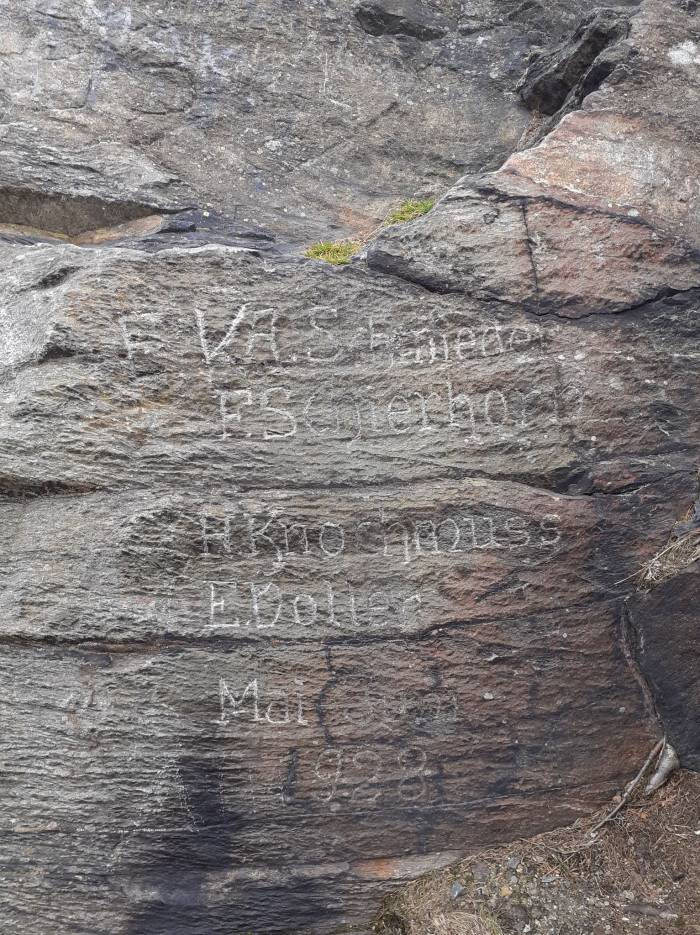 V.A. Schnieder
F. Schierhorn
H. Knochmuss
E. Dolier
Mai Juni
1928